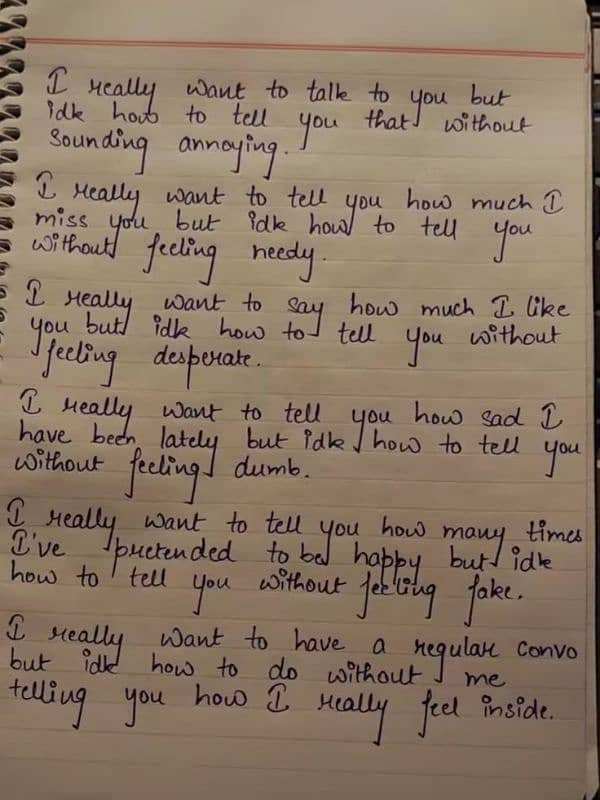 I really want to talk to you but
idk how to tell you that without
sounding annoying.
I really want to tell you how much I
miss you but idk how to tell you
without feeling needy.
I really want to say how much I like
you but idk how to tell you without
feeling desperate.
I really want to tell you how sad I
have been lately but idk how to tell you
without feeling dumb.
I really want to tell you how many times
I've pretended to be happy but idk
how to tell you without feeling fake.
I really want to have a regular convo
but idk how to do without me
telling you how I really feel inside.